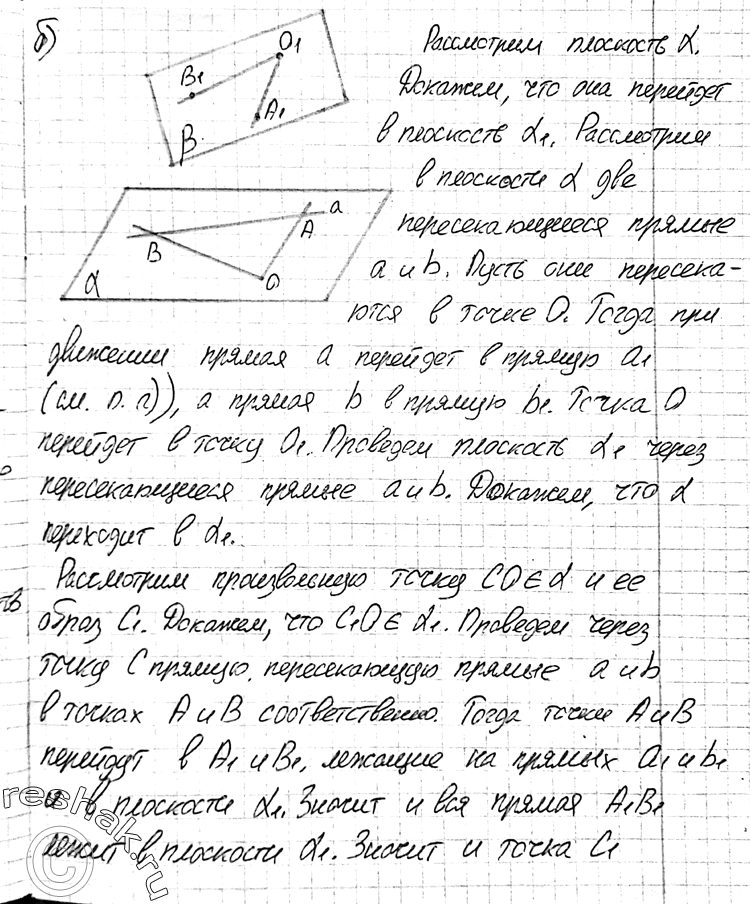 б)
O₁
B₁
A₁
β
a
A
B
O
α
Рассмотрим плоскость α.
Докажем, что она перейдет
в плоскость α₁. Рассмотрим
в плоскости α две
пересекающиеся прямые
a и b. Пусть они пересека-
ются в точке O. Тогда при
движении прямая a перейдет в прямую a₁
(см. п. г)), а прямая b в прямую b₁. Точка O
перейдет в точку O₁. Проведем плоскость α₁ через
пересекающиеся прямые a и b. Докажем, что α
переходит в α₁.
Рассмотрим произвольную точку CO ∈ α и ее
образ C₁. Докажем, что C₁O ∈ α₁. Проведем через
точку C прямую, пересекающую прямые a и b
в точках A и B соответственно. Тогда точки A и B
перейдут в A₁ и B₁, лежащие на прямых a₁ и b₁
и в плоскости α₁. Значит и вся прямая A₁B₁
лежит в плоскости α₁. Значит и точка C₁
©reshak.ru